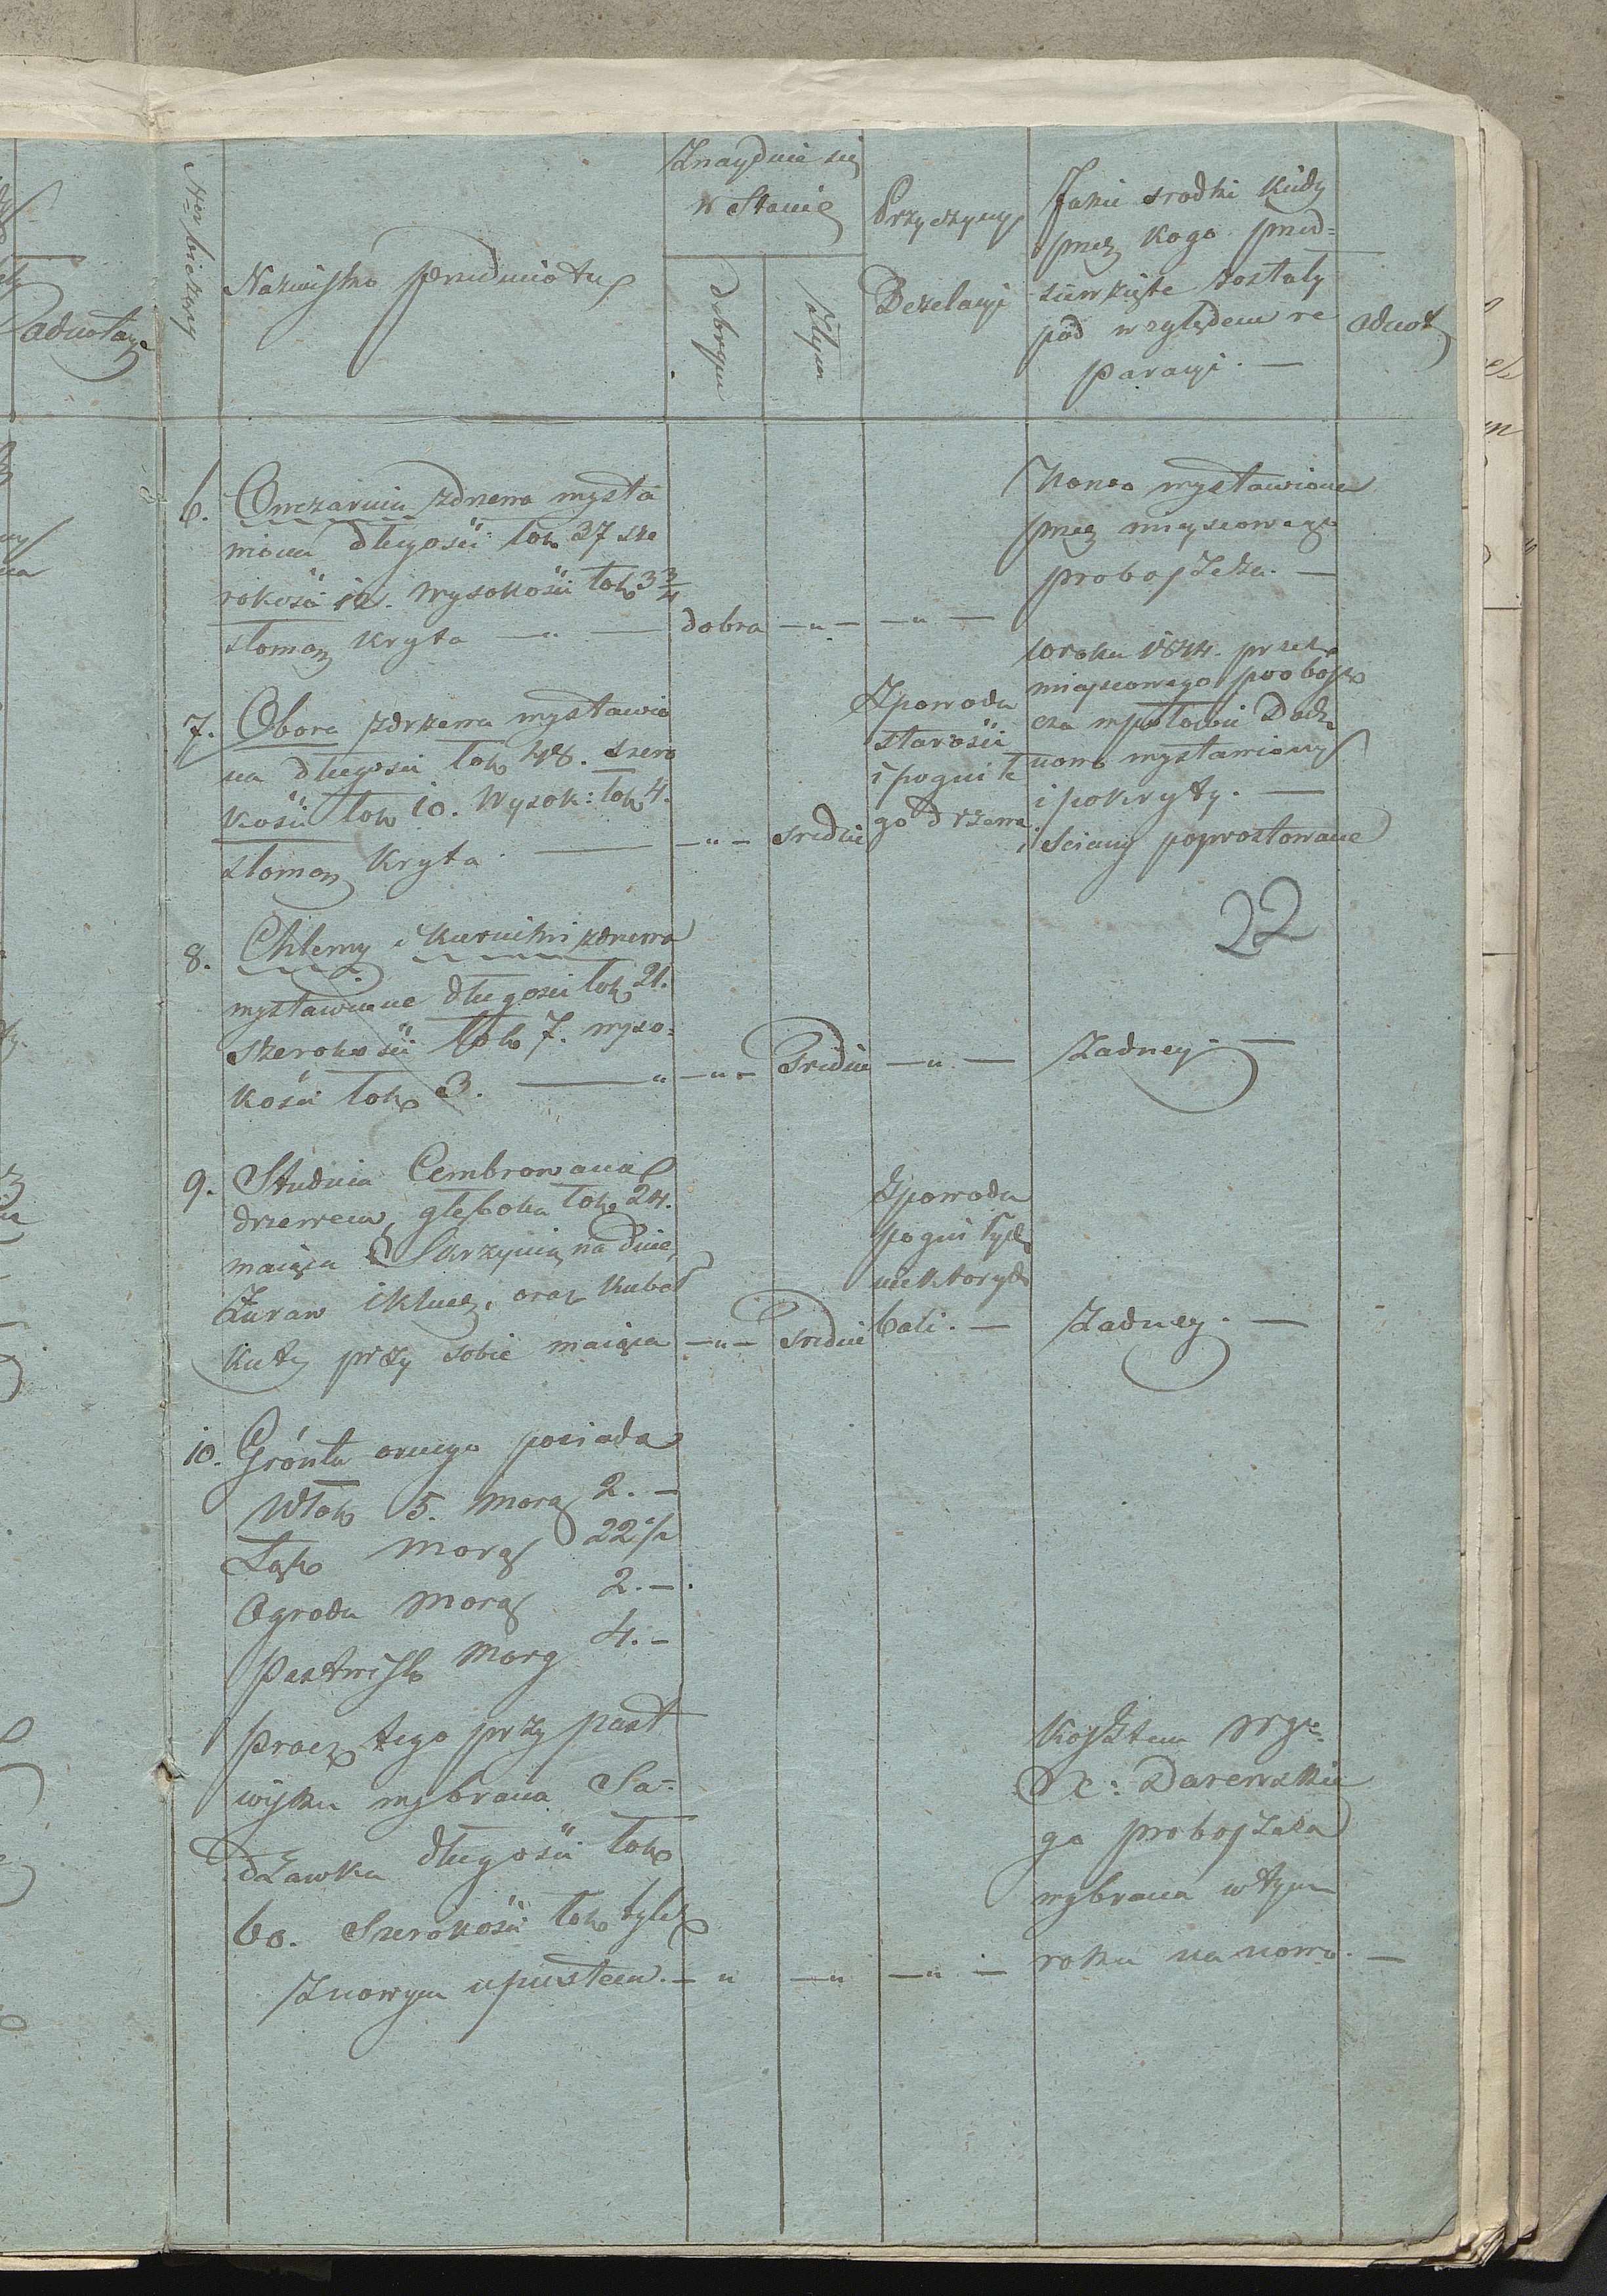 Adnotacye
Ner bieżący
Nazwisko przedmiotu
Znayduie się
w Stanie
dobrym
złym
Przyczyny
Dezelacyi
Jakie srodki kiedy
przez kogo przed=
siewzięte zostały
pod względem re
paracyi. —
Adnot
6. Owczarnia zdrzewa wysta
wiona długości łok 37 sze
rokości 12. wysokości łok 3 3/4
słomą kryta — „ — dobra — „ — — „ —
Nowo wystawiona
przez mieyscowego
proboszcza. —
7. Obora zdrzewa wystawio
na długości łok 48. szero
kości łok 10. Wysok: łok 4.
słomą kryta. — — „ — srednie
Zpowodu
starości
i pogniłe
go drzewa
w roku 1844. przez
mieyscowego probosz
cza w połowie Dach
nowo wystawiony
i pokryty. —
i Sciany poprostowane
22
8. Chlewy i Kurniki zdrzewa
wystawione długości łok 21.
szerokości łok 7. wyso=
kości łok 3. — „ — „ — srednie — „ — żadney. —
9. Studnia Cembrowana
drzewem, głęboka łok 24.
maiąca Skrzynią na dnie,
Żuraw i klucz, oraz kubeł
kuty przy sobie maiąca — „ — srednie
Zpowodu
pogniłych
niektorych
bali. —
żadney. —
10. Gróntu ornego posiada
Włok 5. morg 2. —
Łąk morg 22 1/2
Ogrodu morg 2. —
Pastwisk morg 4. —
Procz tego przy past
wisku wybrana Sa=
dzawka długości łok
60. Szerokości łok tyleż
Znowym upustem. — „ — „ — „ —
Kosztem
X: Darewskie
go proboszcza
wybrana w tym
roku na nowo. —